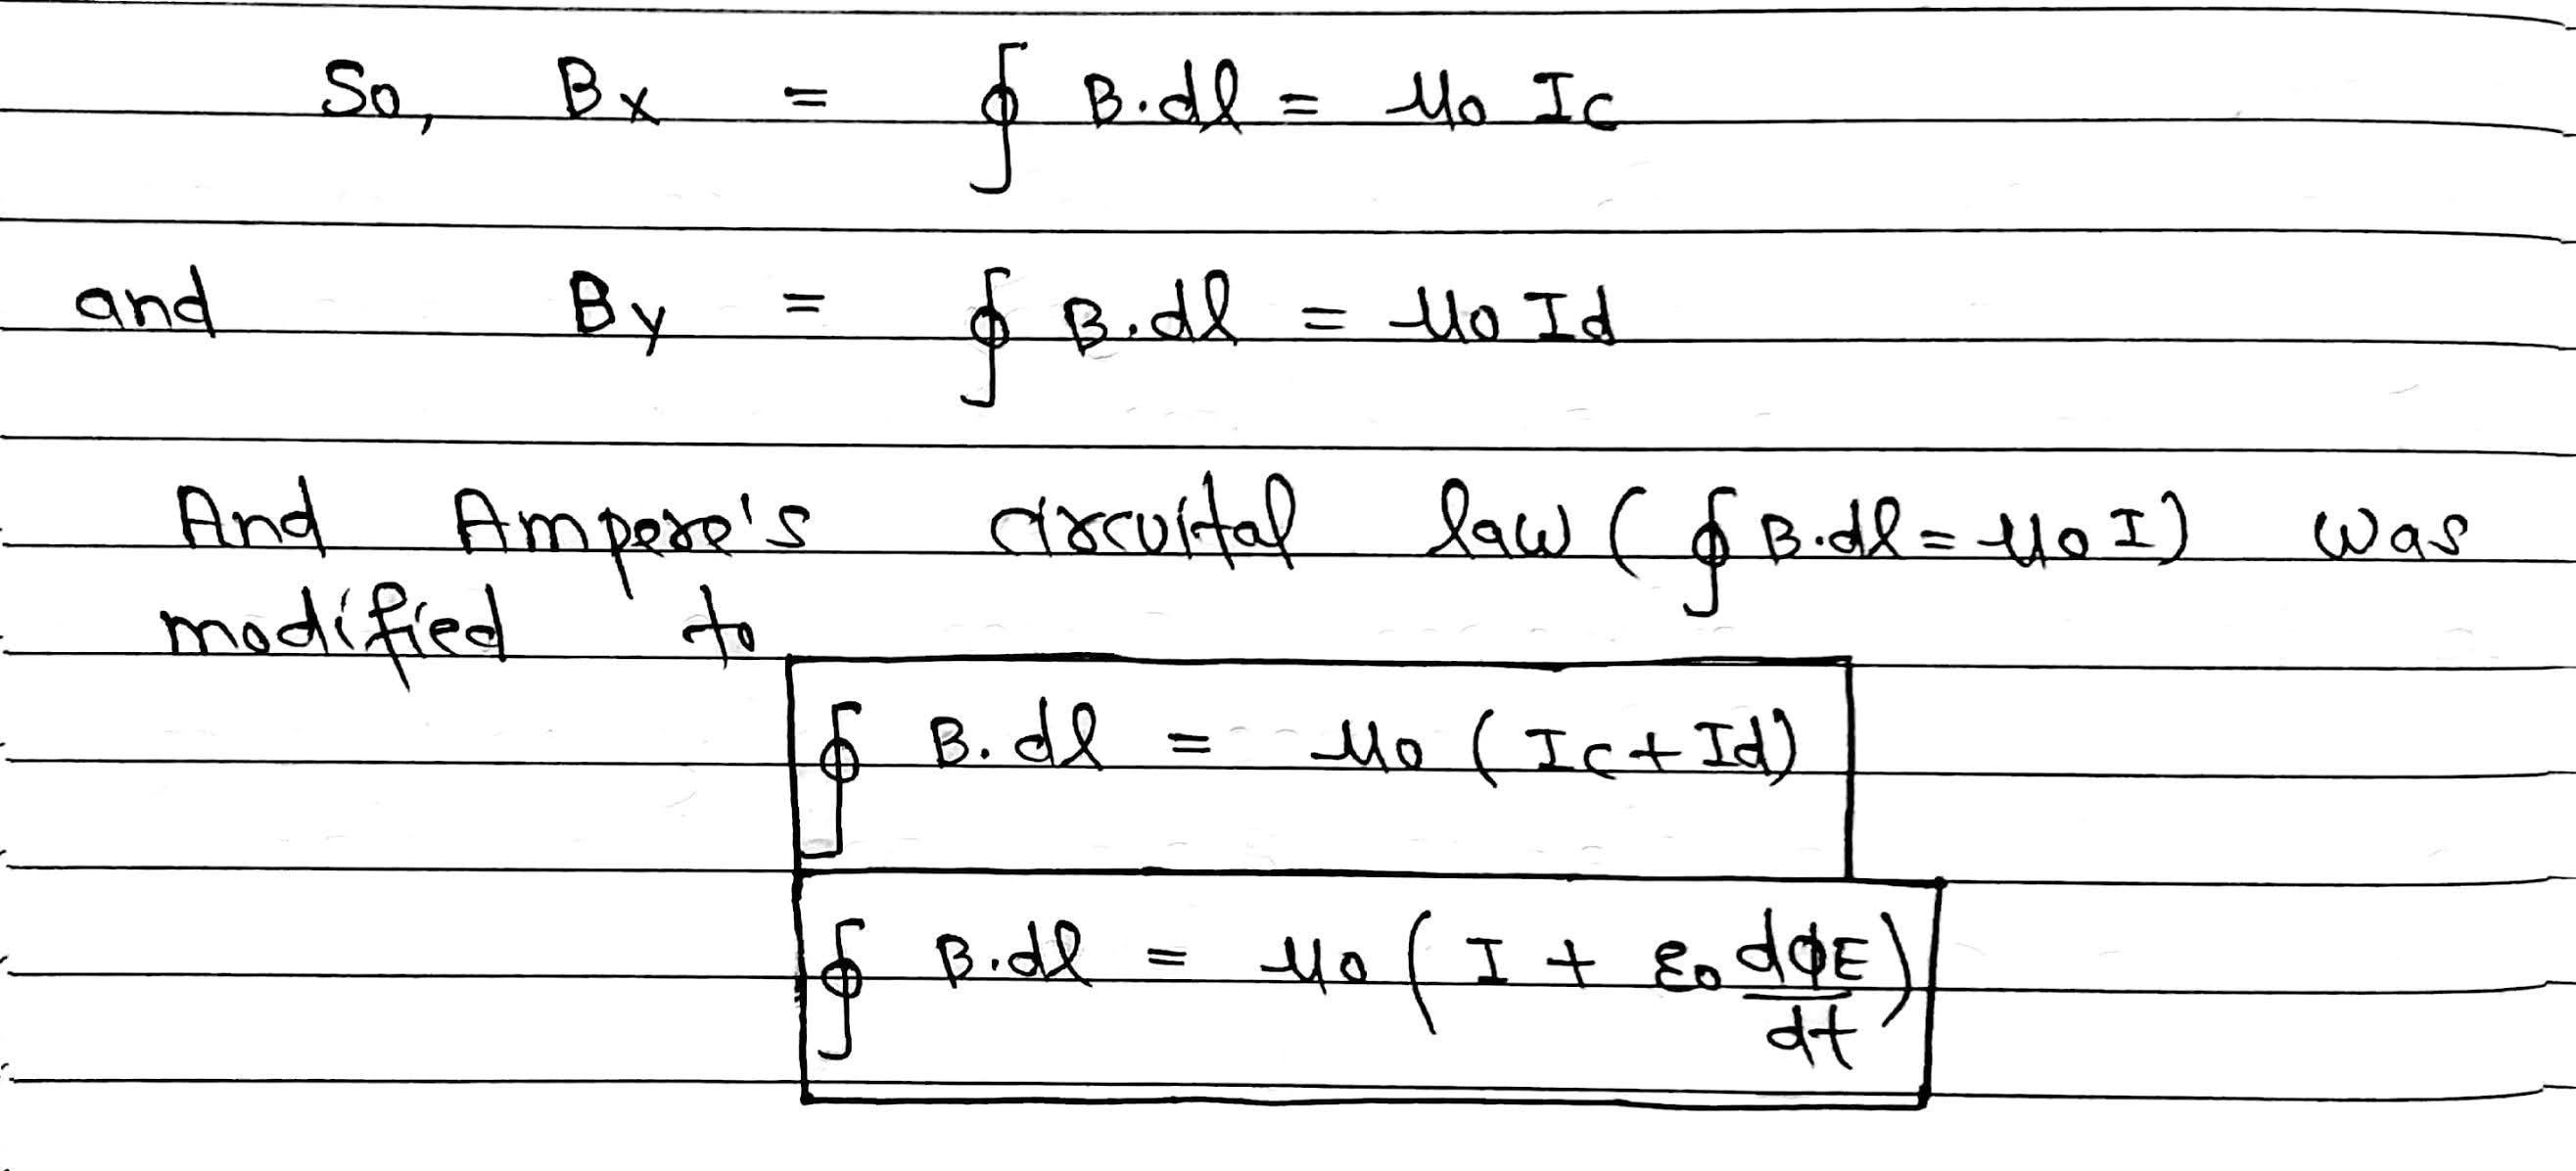 So, Bx = ∮ B.dl = μ0 Ic
and By = ∮ B.dl = μ0 Id
And Ampere's circuital law ( ∮ B.dl = μ0 I) was
modified to
∮ B. dl = μ0 ( Ic + Id)
∮ B.dl = μ0 ( I + ε0 dϕE/dt )